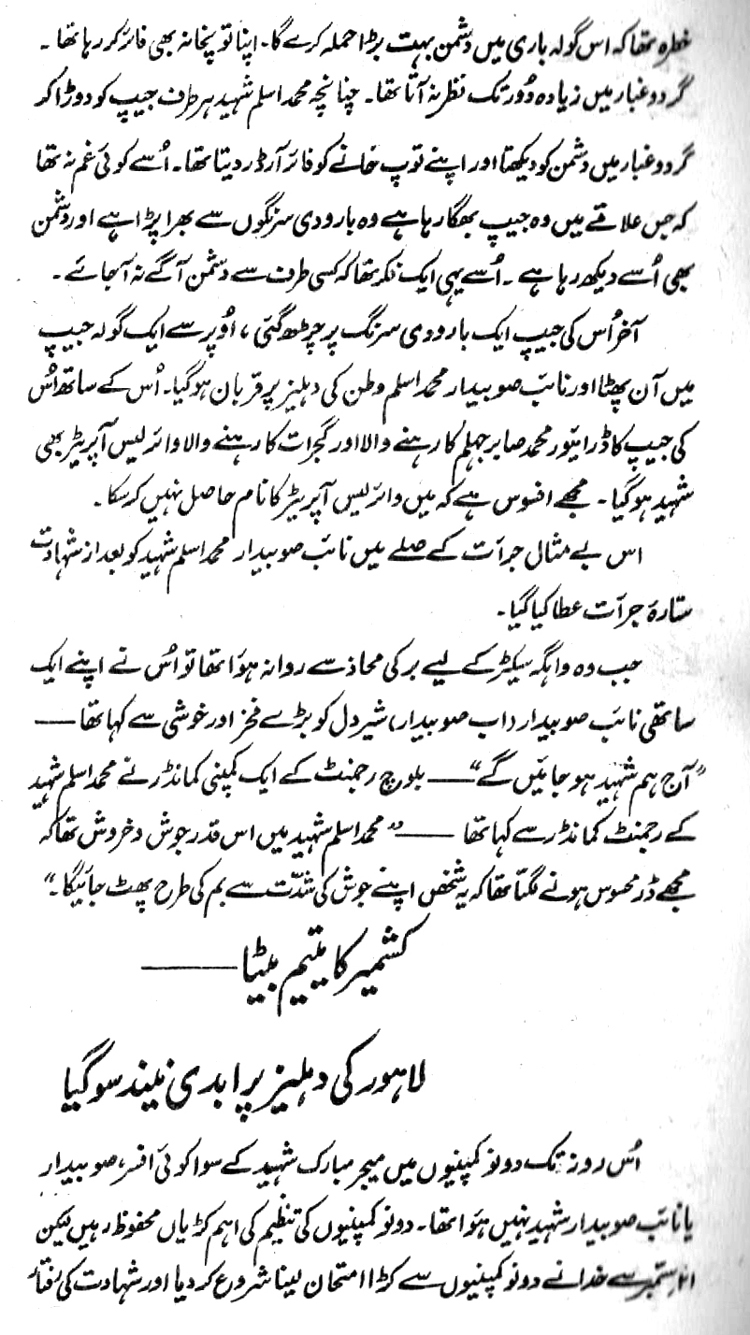 خطرہ تھا کہ اس گولہ باری میں دشمن بہت بڑا حملہ کرے گا۔ اپنا توپخانہ بھی فائر کر رہا تھا۔
گرد و غبار میں زیادہ دُور تک نظر نہ آتا تھا۔ چنانچہ محمد اسلم شہید ہر طرف جیپ کو دوڑا کر
گرد و غبار میں دشمن کو دیکھتا اور اپنے توپ خانے کو فائر آرڈر دیتا تھا۔ اُسے کوئی غم نہ تھا
کہ جس علاقے میں وہ جیپ بھگا رہا ہے وہ بارودی سرنگوں سے بھرا پڑا ہے اور دشمن
بھی اُسے دیکھ رہا ہے۔ اُسے یہی ایک فکر تھا کہ کسی طرف سے دشمن آگے نہ آ جائے۔
آخر اُس کی جیپ ایک بارودی سرنگ پر چڑھ گئی، اُوپر سے ایک گولہ جیپ
میں آن پھٹا اور نائب صوبیدار محمد اسلم وطن کی دہلیز پر قربان ہو گیا۔ اُس کے ساتھ اُس
کی جیپ کا ڈرائیور محمد صابر جہلم کا رہنے والا اور گجرات کا رہنے والا وائرلیس آپریٹر بھی
شہید ہو گیا۔ مجھے افسوس ہے کہ میں وائرلیس آپریٹر کا نام حاصل نہیں کر سکا۔
اس بے مثال جرأت کے صلے میں نائب صوبیدار محمد اسلم شہید کو بعد از شہادت
ستارۂ جرأت عطا کیا گیا۔
جب وہ واہگہ سیکٹر کے لیے برکی محاذ سے روانہ ہوا تھا تو اُس نے اپنے ایک
ساتھی نائب صوبیدار (اب صوبیدار) شیردل کو بڑے فخر اور خوشی سے کہا تھا ——
”آج ہم شہید ہو جائیں گے“ —— بلوچ رجمنٹ کے ایک کمپنی کمانڈر نے محمد اسلم شہید
کے رجمنٹ کمانڈر سے کہا تھا —— ”محمد اسلم شہید میں اس قدر جوش و خروش تھا کہ
مجھے ڈر محسوس ہونے لگتا تھا کہ یہ شخص اپنے جوش کی شدّت سے بم کی طرح پھٹ جائیگا۔“
کشمیر کا یتیم بیٹا ——
لاہور کی دہلیز پر ابدی نیند سو گیا
اُس روز تک دونو کمپنیوں میں میجر مبارک شہید کے سوا کوئی افسر، صوبیدار
یا نائب صوبیدار شہید نہیں ہوا تھا۔ دونو کمپنیوں کی تنظیم کی اہم کڑیاں محفوظ رہیں لیکن
ستمبر سے خدا نے دونو کمپنیوں سے کڑا امتحان لینا شروع کر دیا اور شہادت کی رفتار